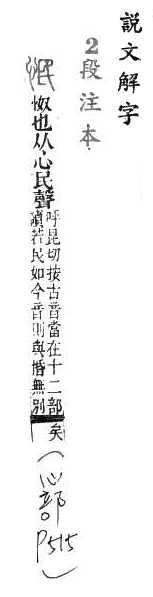 説文解字
2段注本
怋
怓也从心民聲
呼昆切按古音當在十二部
讀若民如今音則與惛無別
矣
（心部
P515）